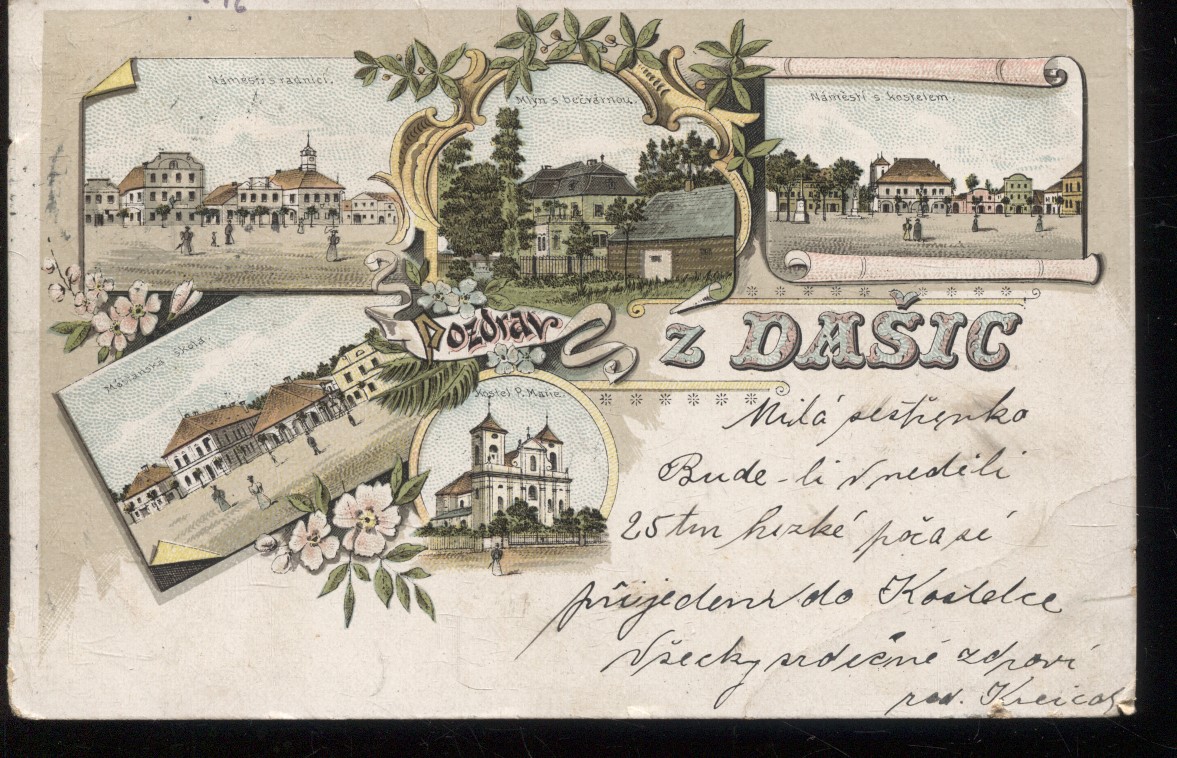 Náměstí s radnicí.
Mlýn s bečvárnou.
Náměstí s kostelem
Pozdrav z DAŠIC
Kostel P. Marie.
Milá sestřenko
Bude-li v neděli
25tm hezké počasí
přijedem do Kostelce
Všecky srdečně zdraví
rod.